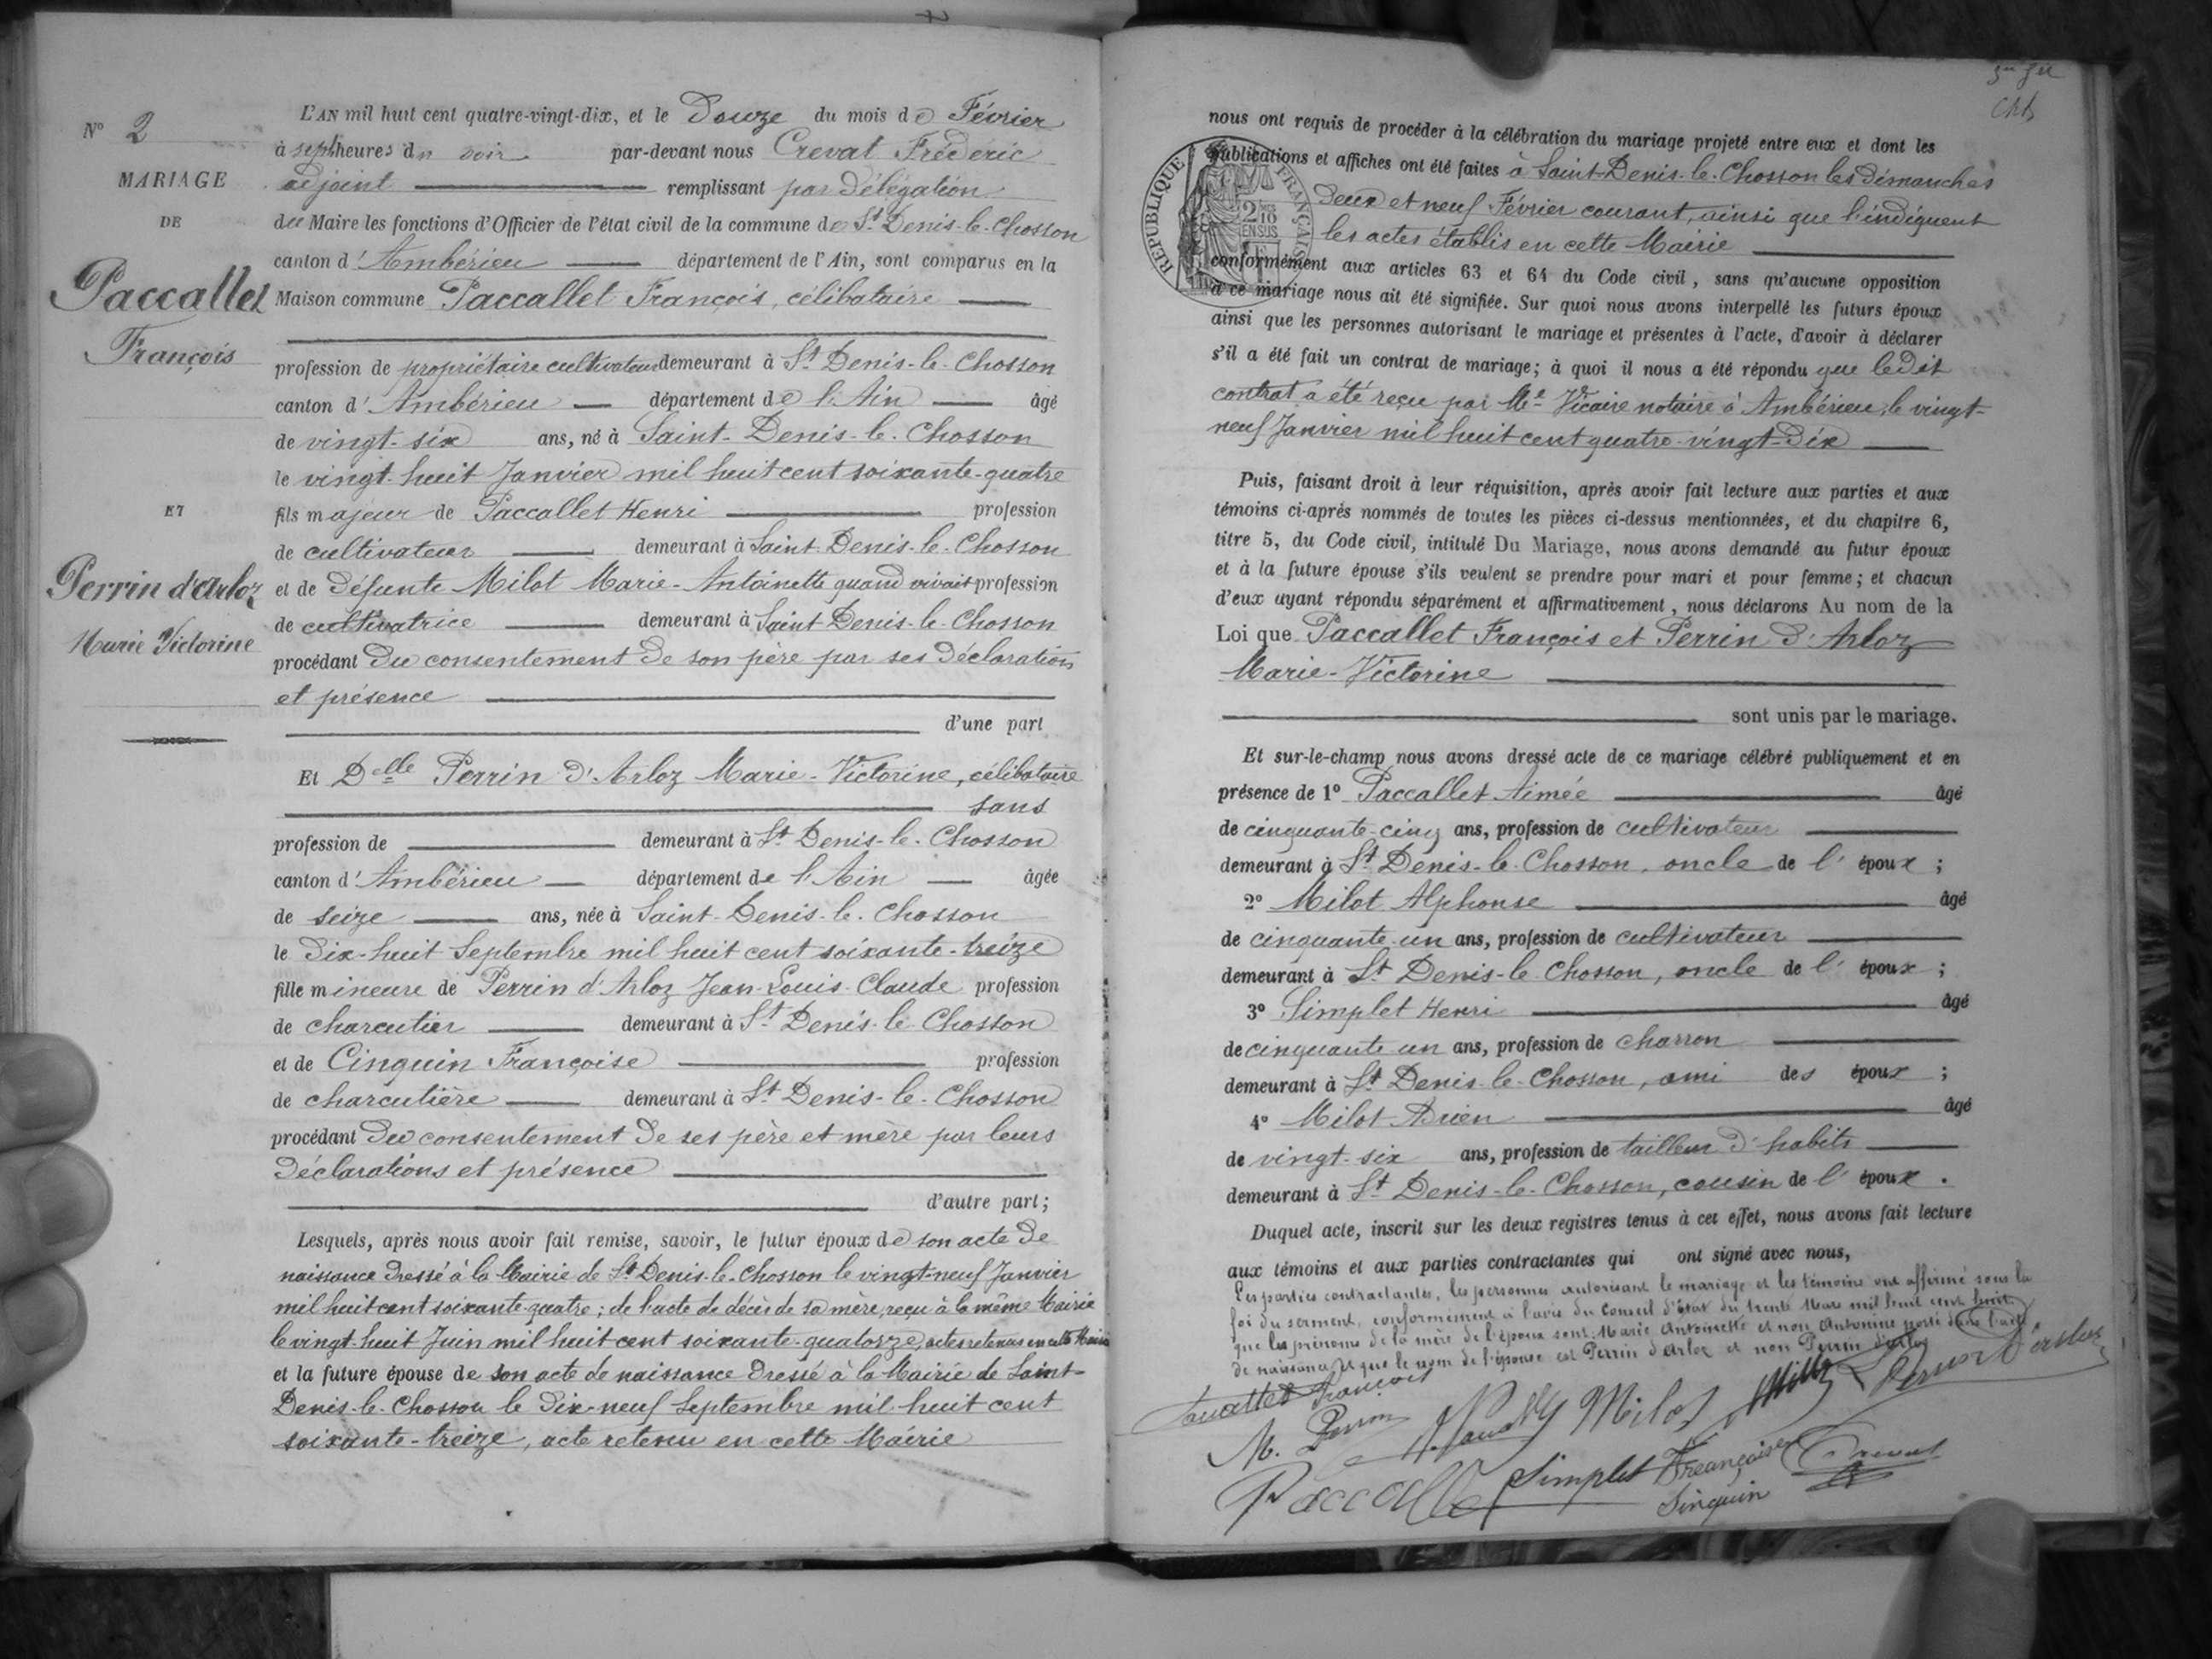 N° 2
MARIAGE
DE
Paccallet
François
ET
Perrin d'Arloz
Marie Victorine
L'AN mil huit cent quatre-vingt-dix, et le Douze du mois de Février
à sept heures du soir par-devant nous Crevat Fréderic
adjoint remplissant par délégation
du Maire les fonctions d'Officier de l'état civil de la commune de St Denis-le-Chosson
canton d'Ambérieu département de l'Ain, sont comparus en la
Maison commune Paccallet François, célibataire
profession de propriétaire cultivateur demeurant à St Denis-le-Chosson
canton d'Ambérieu département de l'Ain âgé
de vingt-six ans, né à Saint-Denis-le-Chosson
le vingt-huit Janvier mil huit cent soixante-quatre
fils majeur de Paccallet Henri profession
de cultivateur demeurant à Saint-Denis-le-Chosson
et de défunte Milot Marie-Antoinette quand vivait profession
de cultivatrice demeurant à Saint Denis-le-Chosson
procédant du consentement de son père par ses déclaration
et présence
d'une part
Et Delle Perrin d'Arloz Marie-Victorine, célibataire
sans
profession de demeurant à St Denis-le-Chosson
canton d'Ambérieu département de l'Ain âgée
de seize ans, née à Saint-Denis-le-Chosson
le Dix-huit Septembre mil huit cent soixante-treize
fille mineure de Perrin d'Arloz Jean-Louis-Claude profession
de charcutier demeurant à St Denis-le-Chosson
et de Cinquin Françoise profession
de charcutière demeurant à St Denis-le-Chosson
procédant du consentement de ses père et mère par leurs
déclarations et présence
d'autre part;
Lesquels, après nous avoir fait remise, savoir, le futur époux de son acte de
naissance dressé à la Mairie de St Denis-le-Chosson le vingt-neuf Janvier
mil huit cent soixante-quatre; de l'acte de décès de sa mère, reçu à la même Mairie
le vingt-huit Juin mil huit cent soixante-quatorze, actes retenus en cette Mairie
et la future épouse de son acte de naissance dressé à la Mairie de Saint-
Denis-le-Chosson le Dix-neuf Septembre mil huit cent
soixante-treize, acte retenu en cette Mairie
nous ont requis de procéder à la célébration du mariage projeté entre eux et dont les
publications et affiches ont été faites à Saint-Denis-le-Chosson les dimanches
deux et neuf Février courant, ainsi que l'indiquent
les actes établis en cette Mairie
RÉPUBLIQUE FRANÇAISE
2/10
EN SUS
conformément aux articles 63 et 64 du Code civil, sans qu'aucune opposition
à ce mariage nous ait été signifiée. Sur quoi nous avons interpellé les futurs époux
ainsi que les personnes autorisant le mariage et présentes à l'acte, d'avoir à déclarer
s'il a été fait un contrat de mariage; à quoi il nous a été répondu que ledit
contrat a été reçu par Me Vicaire notaire à Ambérieu, le vingt-
neuf Janvier mil huit cent quatre-vingt-dix
Puis, faisant droit à leur réquisition, après avoir fait lecture aux parties et aux
témoins ci-après nommés de toutes les pièces ci-dessus mentionnées, et du chapitre 6,
titre 5, du Code civil, intitulé Du Mariage, nous avons demandé au futur époux
et à la future épouse s'ils veulent se prendre pour mari et pour femme; et chacun
d'eux ayant répondu séparément et affirmativement, nous déclarons Au nom de la
Loi que Paccallet François et Perrin d'Arloz
Marie-Victorine
sont unis par le mariage.
Et sur-le-champ nous avons dressé acte de ce mariage célébré publiquement et en
présence de 1° Paccallet Aimée âgé
de cinquante-cinq ans, profession de cultivateur
demeurant à St Denis-le-Chosson, oncle de l'époux;
2° Milot Alphonse âgé
de cinquante un ans, profession de cultivateur
demeurant à St Denis-le-Chosson, oncle de l'époux;
3° Simplet Henri âgé
de cinquante un ans, profession de charron
demeurant à St Denis-le-Chosson, ami des époux;
4° Milot Drien âgé
de vingt-six ans, profession de tailleur d'habits
demeurant à St Denis-le-Chosson, cousin de l'époux.
Duquel acte, inscrit sur les deux registres tenus à cet effet, nous avons fait lecture
aux témoins et aux parties contractantes qui ont signé avec nous,
Les parties contractantes, les personnes autorisant le mariage et les témoins ont affirmé sous la
foi du serment, conformément à l'avis du Conseil d'État du trente Mars mil huit cent huit
que les prénoms de la mère de l'époux sont: Marie Antoinette et non Antonine porté dans l'acte
de naissance et que le nom de l'épouse est Perrin d'Arloz et non Perrin d'arloz
Paccallet François
M. Perrin
Milot
Perrin d'arloz
Paccallet
Simplet
Françoise
Sinquin
Crevat